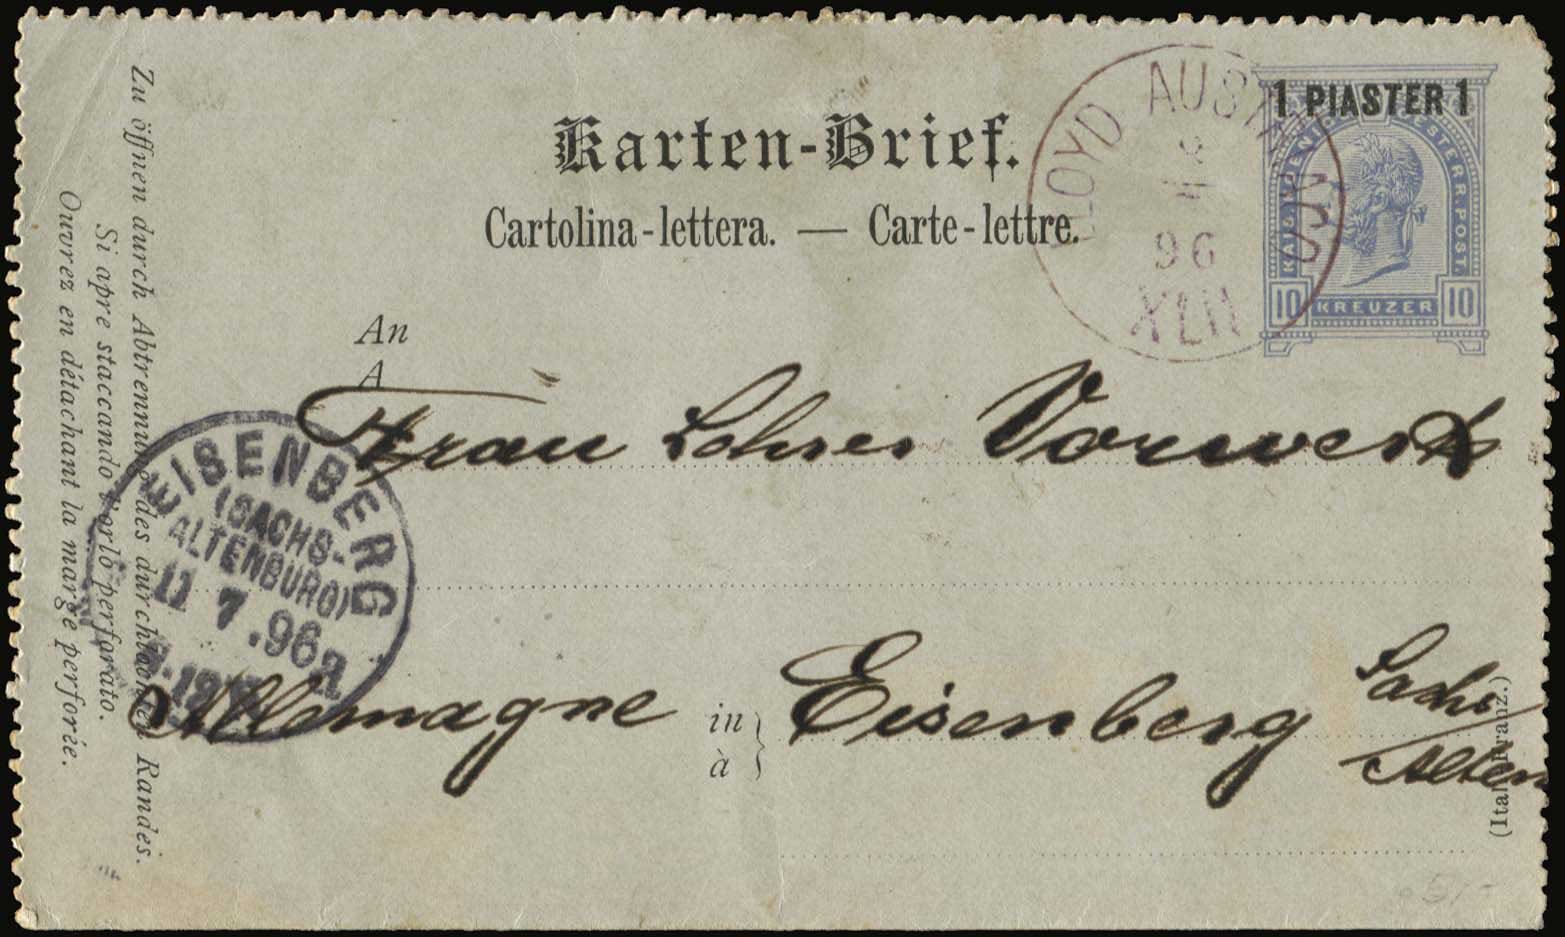 Karten-Brief.
Cartolina-lettera. — Carte-lettre.
1 PIASTER 1
10 KREUZER 10
LLOYD AUSTRIACO
96
XLII
An
A
Frau Lehrer Vorwerk
Allemagne
in
à
Eisenberg
Sachs
Alten
EISENBERG
(SACHS-
ALTENBURG)
11 7.96
Zu öffnen durch Abtrennung des durchlochten Randes.
Si apre staccando l'orlo perforato.
Ouvrez en détachant la marge perforée.
(Ital.-Franz.)